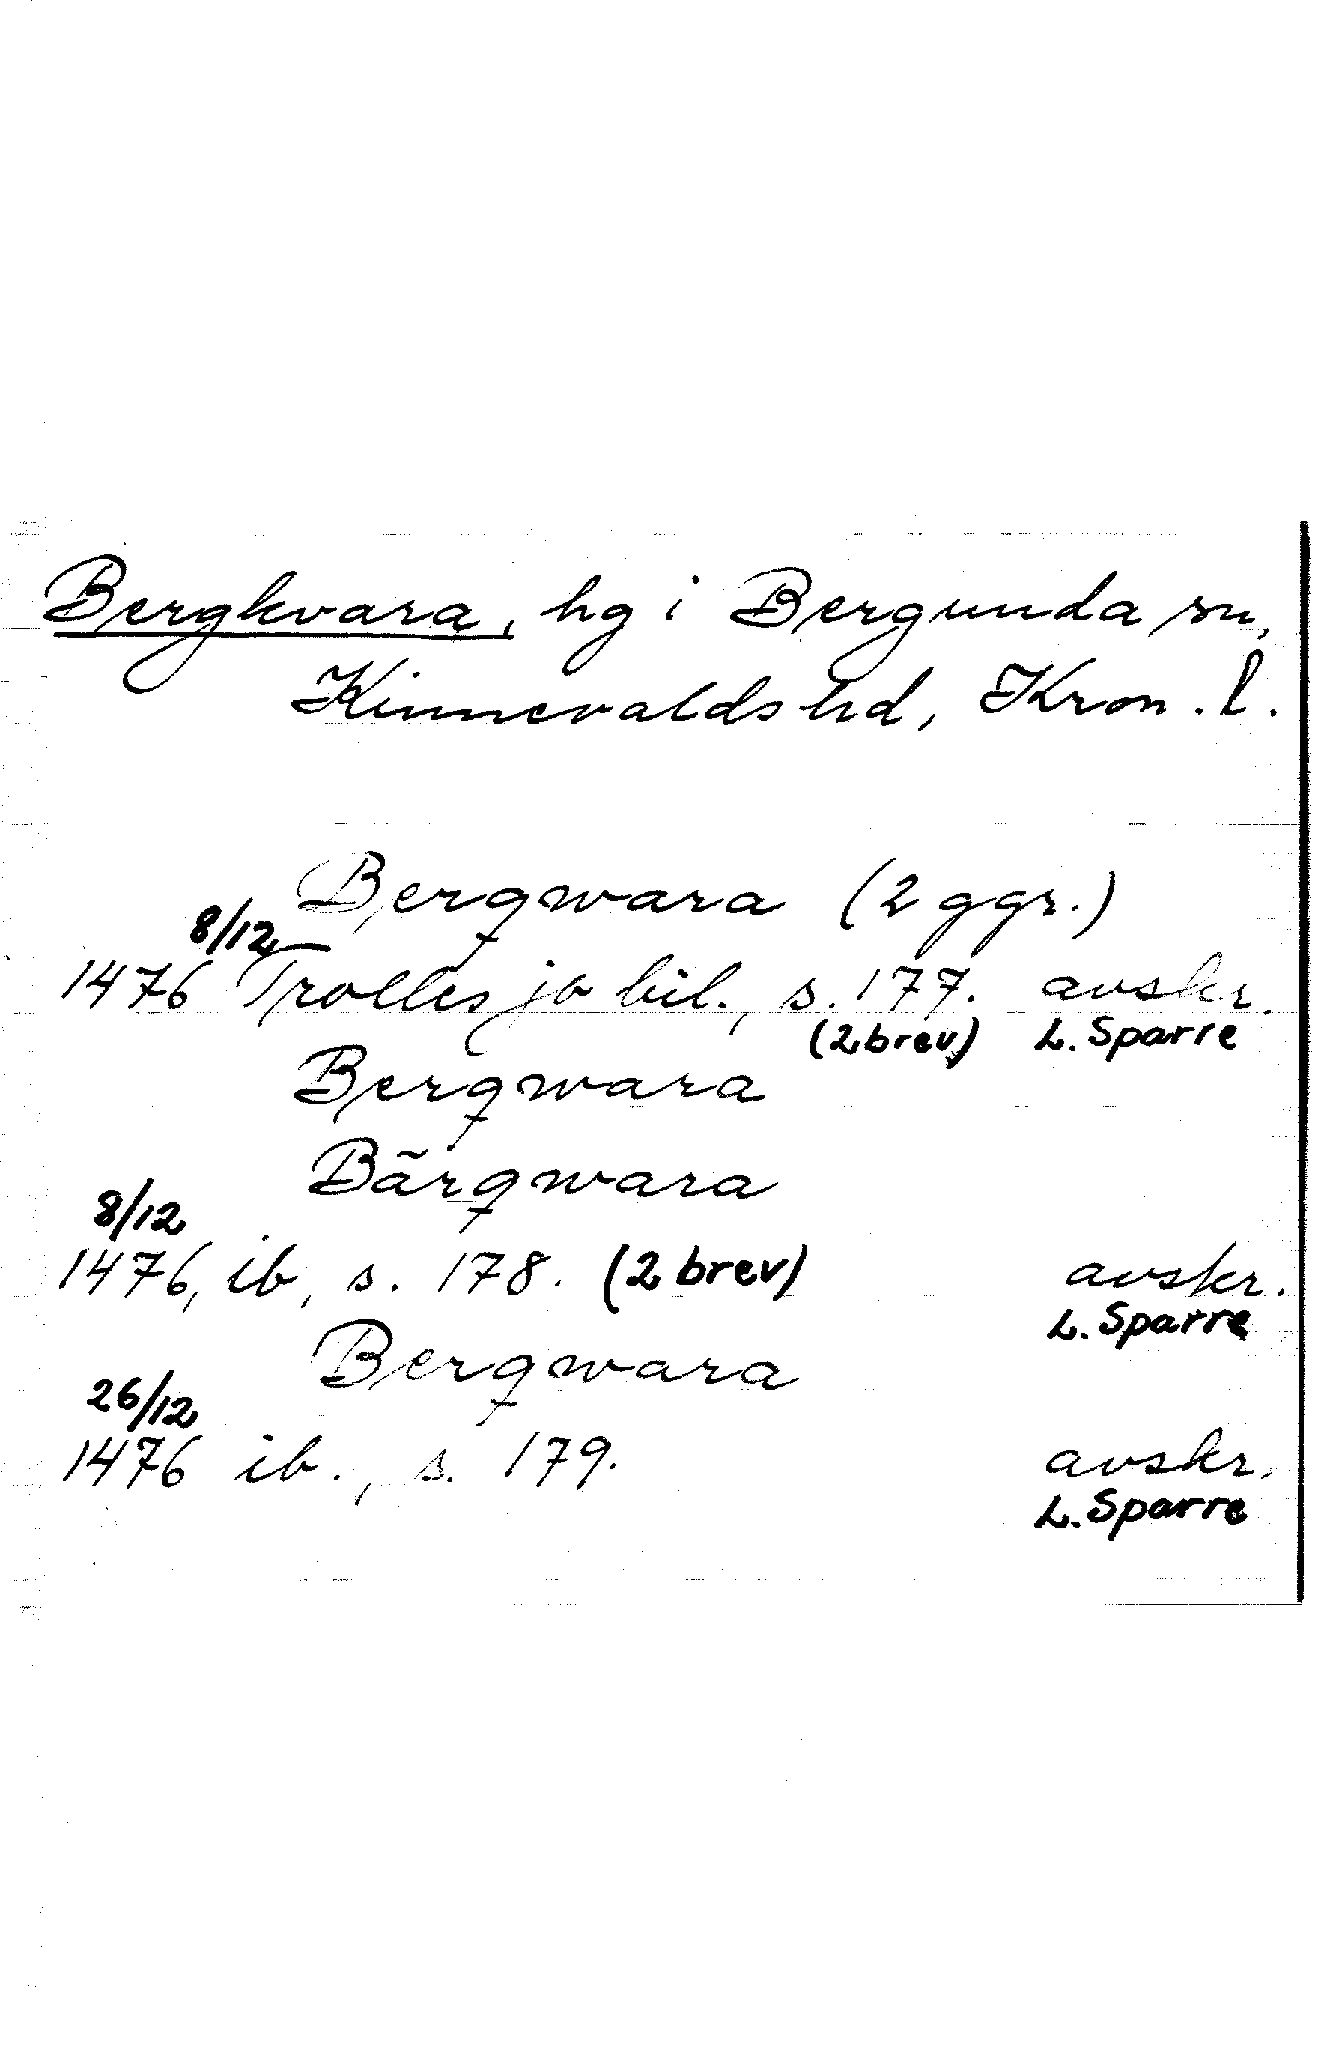 Bergkvara, hg i Bergunda sn,
Kinnevalds hd, Kron. l.
Bergqwara (2 ggr.)
8/12
1476 Trolles jo bil., s. 177. avskr.
(2 brev) L. Sparre
Berqwara
Bärqwara
8/12
1476, ib, s. 178. (2 brev) avskr.
L. Sparre
Berqwara
26/12
1476 ib., s. 179. avskr.
L. Sparre